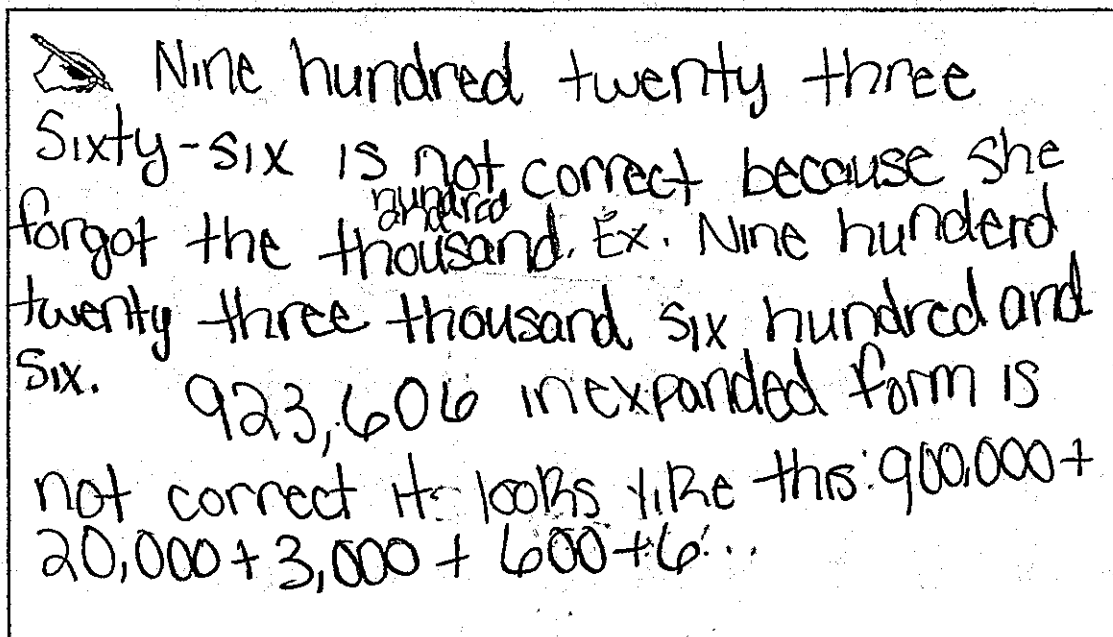 Nine hundred twenty three
Sixty-six is not correct because she
hundred
forgot the thousand. Ex. Nine hunderd
twenty three thousand six hundred and
six. 923,606 in expanded form is
not correct it looks like this: 900,000+
20,000+3,000+600+6...